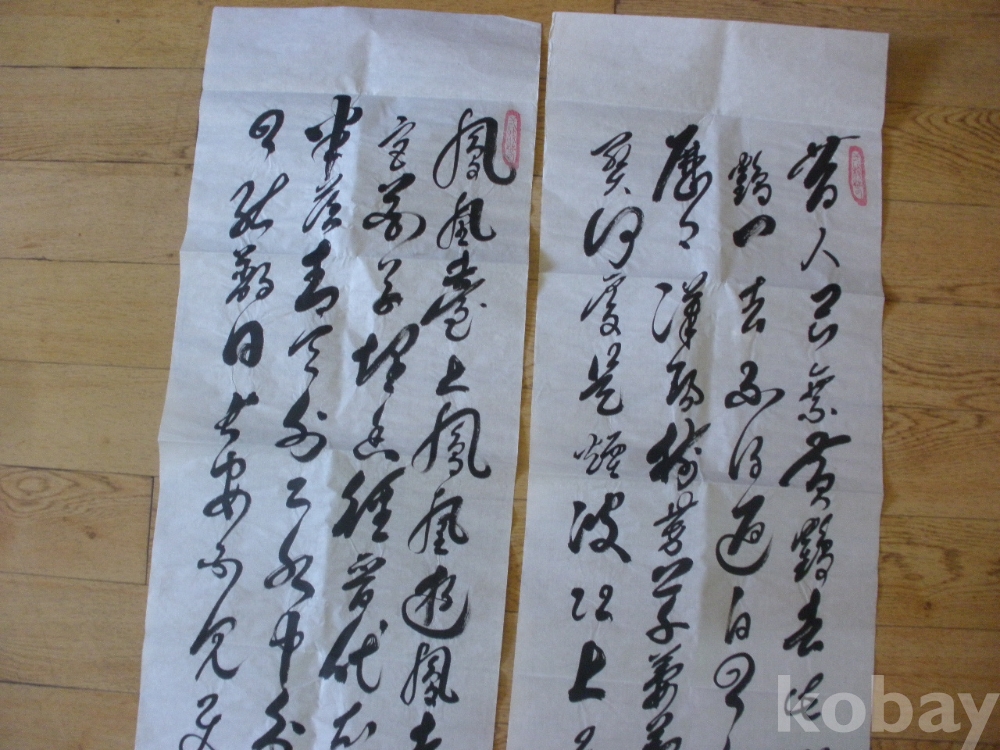 昔人已乘黃鶴去此
鶴一去不復返白雲
歷々漢陽樹芳草萋萋
關何處是煙波江上
鳳凰臺上鳳凰遊鳳去
宮花草埋幽徑晉代衣
半落青天外二水中分
雲能蔽日長安不見使
kobay